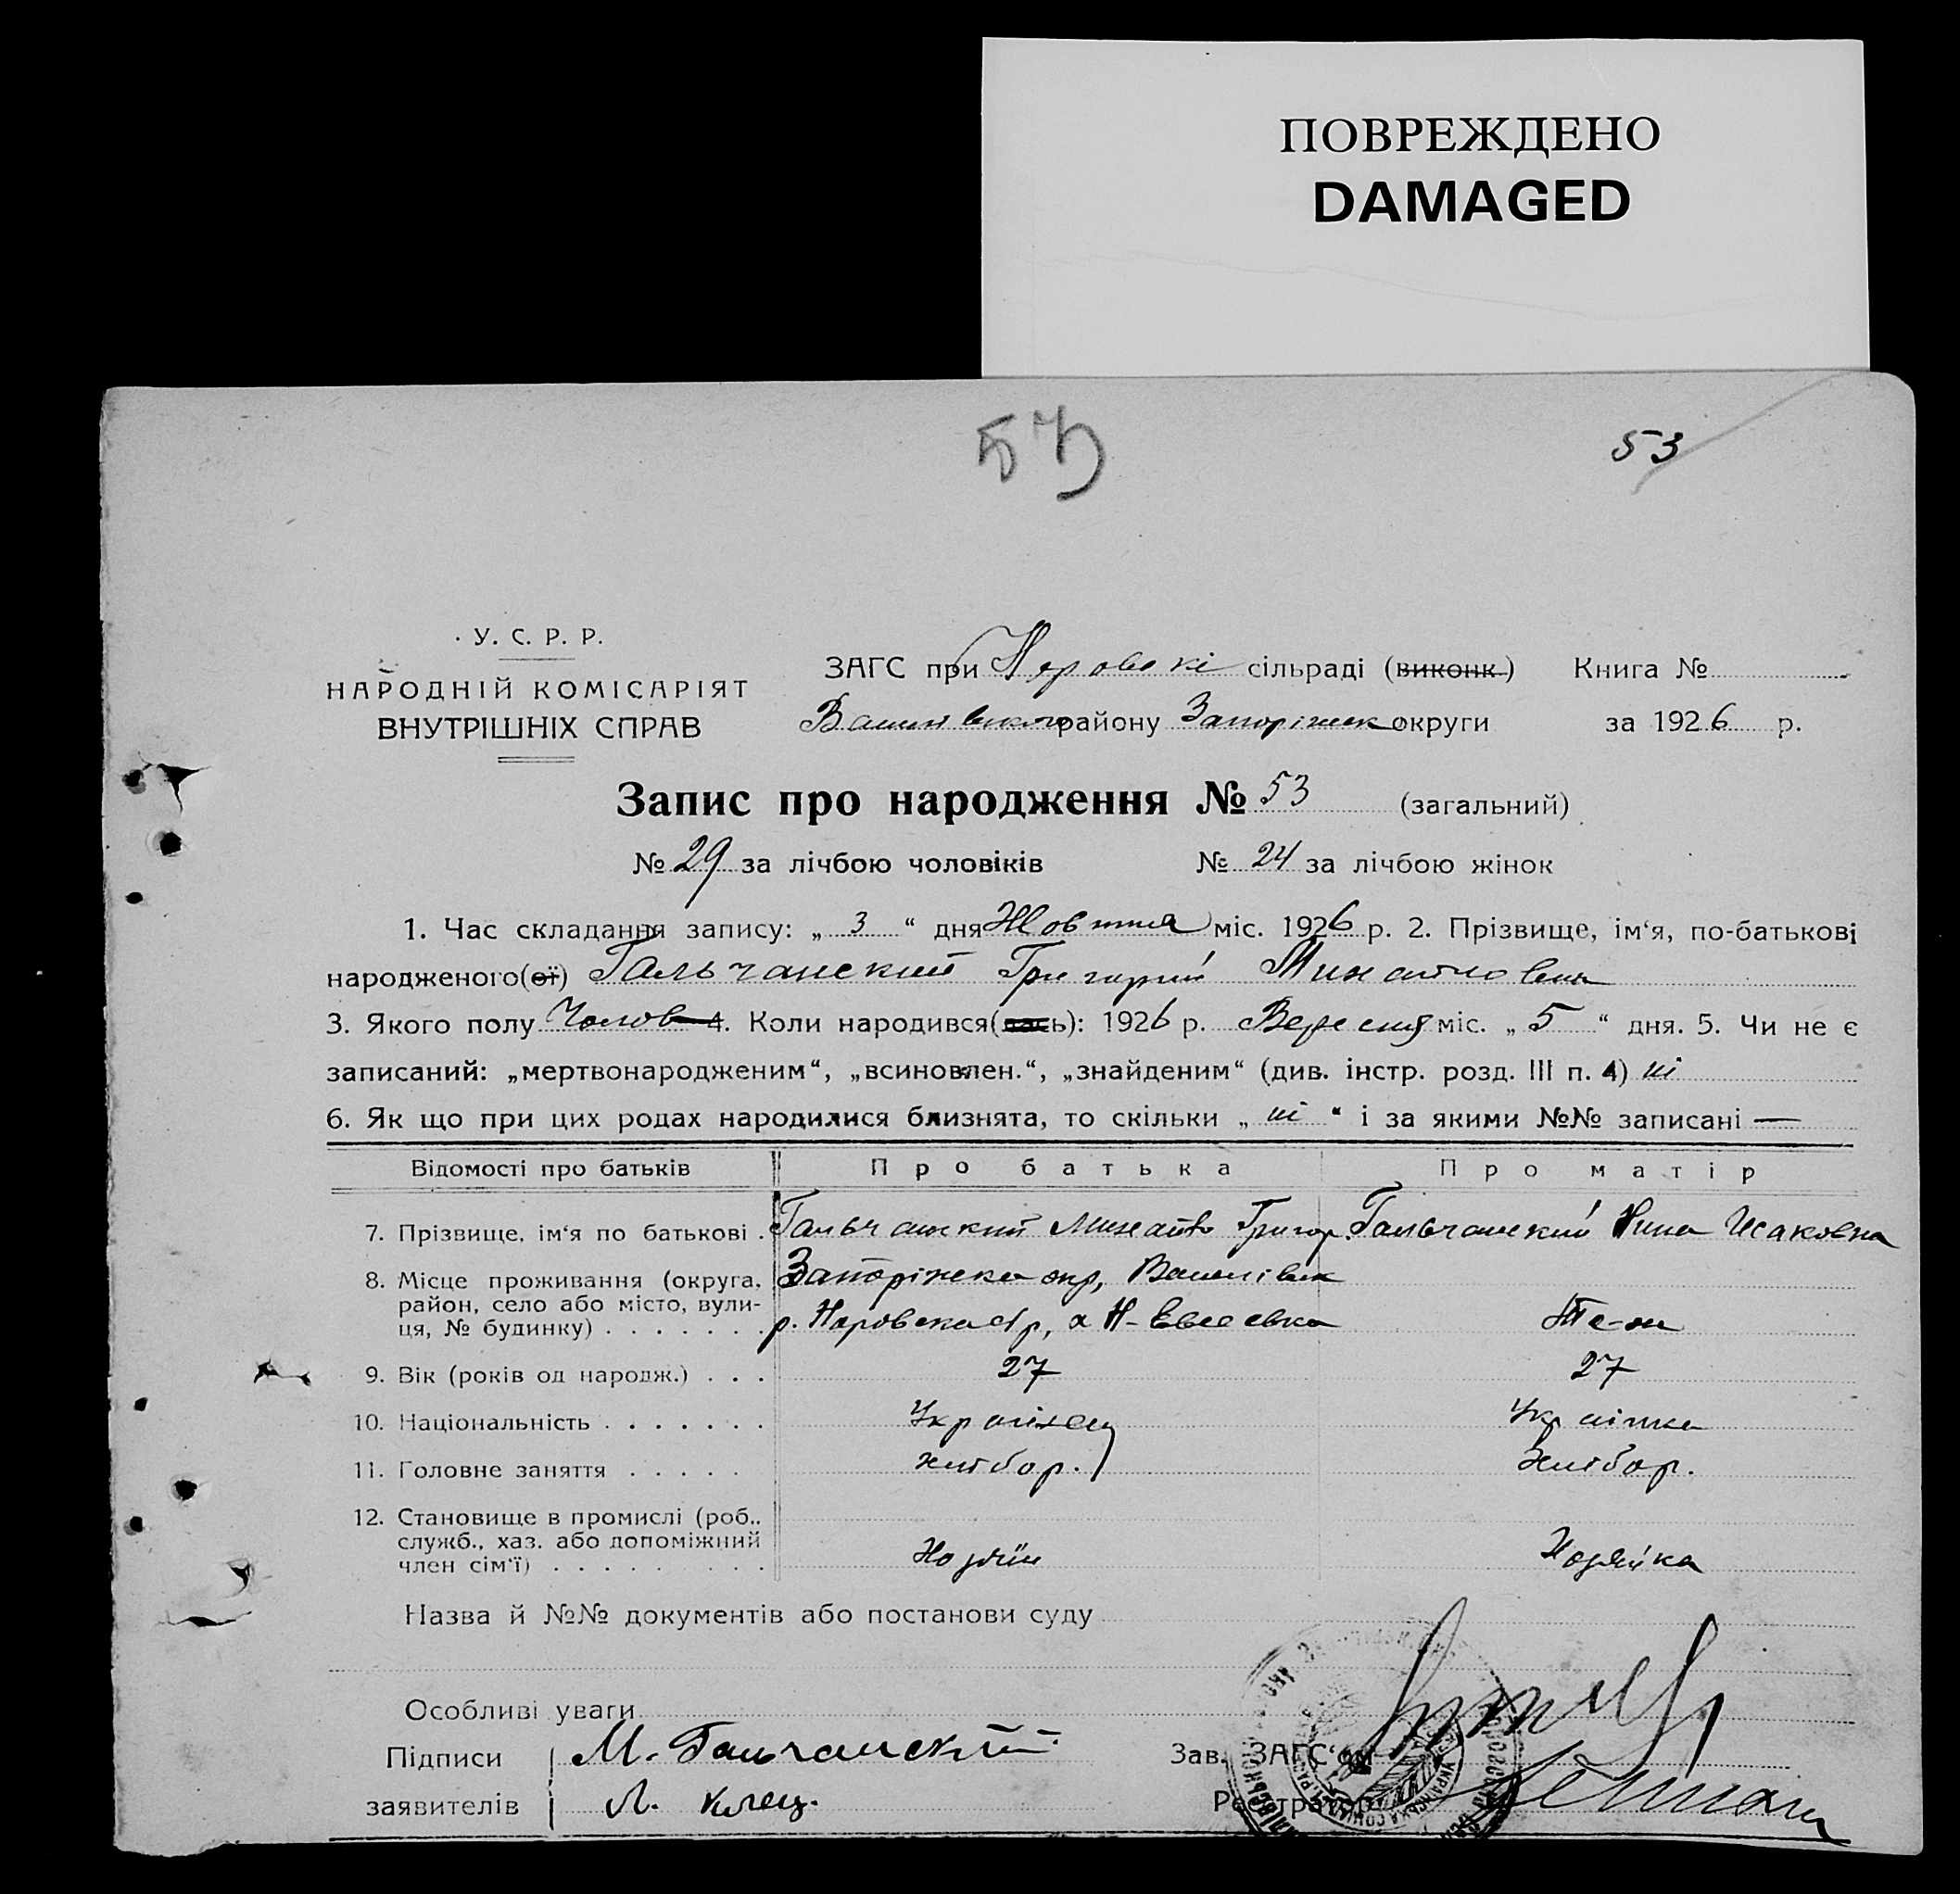 ПОВРЕЖДЕНО
DAMAGED
53
53
У. С. Р. Р.
НАРОДНІЙ КОМІСАРІЯТ
ВНУТРІШНІХ СПРАВ
ЗАГС при сільраді (виконк.) Книга №
району Запоріжск округи за 1926 р.
Запис про народження № 53 (загальний)
№ 29 за лічбою чоловіків № 24 за лічбою жінок
1. Час складання запису: „ 3 “ дня Жовтня міс. 1926 р. 2. Прізвище, ім‘я, по-батькові
народженого(ої) Гальчанский Григорий
3. Якого полу Чолов 4. Коли народився(лась): 1926 р. Вересня міс. „ 5 “ дня. 5. Чи не є
записаний: „мертвонародженим“, „всиновлен.“, „знайденим“ (див. інстр. розд. III п. 4) ні
6. Як що при цих родах народилися близнята, то скільки „ ні “ і за якими №№ записані —
Відомості про батьків Про батька Про матір
7. Прізвище, ім‘я по батькові . Гальчанский Михайло Григор. Гальчанский Нина Исаковна
8. Місце проживання (округа, Запоріжска окр,
район, село або місто, вули-
ця, № будинку) . . . . . . . Н-Евсеевка Те-ж
9. Вік (років од народж.) . . . 27 27
10. Національність . . . . . . . Українец Українка
11. Головне заняття . . . . . хлібор. Хлібор.
12. Становище в промислі (роб.,
служб., хаз. або допоміжний
член сім‘ї) . . . . . . . . Хозяїн Хозяйка
Назва й №№ документів або постанови суду
Особливі уваги
Підписи М. Гальчанский
Зав. ЗАГС‘ом
заявителів Л. Клец.
Реєстратор